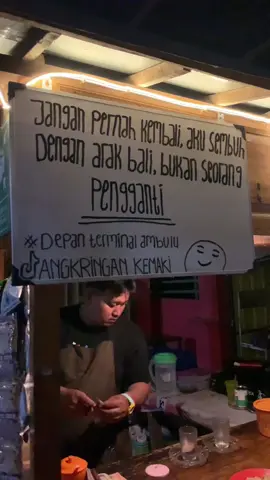 Jangan Pernah kembali, aku sembuh
Dengan arak bali, bukan seorang
Pengganti
* Depan terminal ambulu
ANGKRINGAN KEMAKI